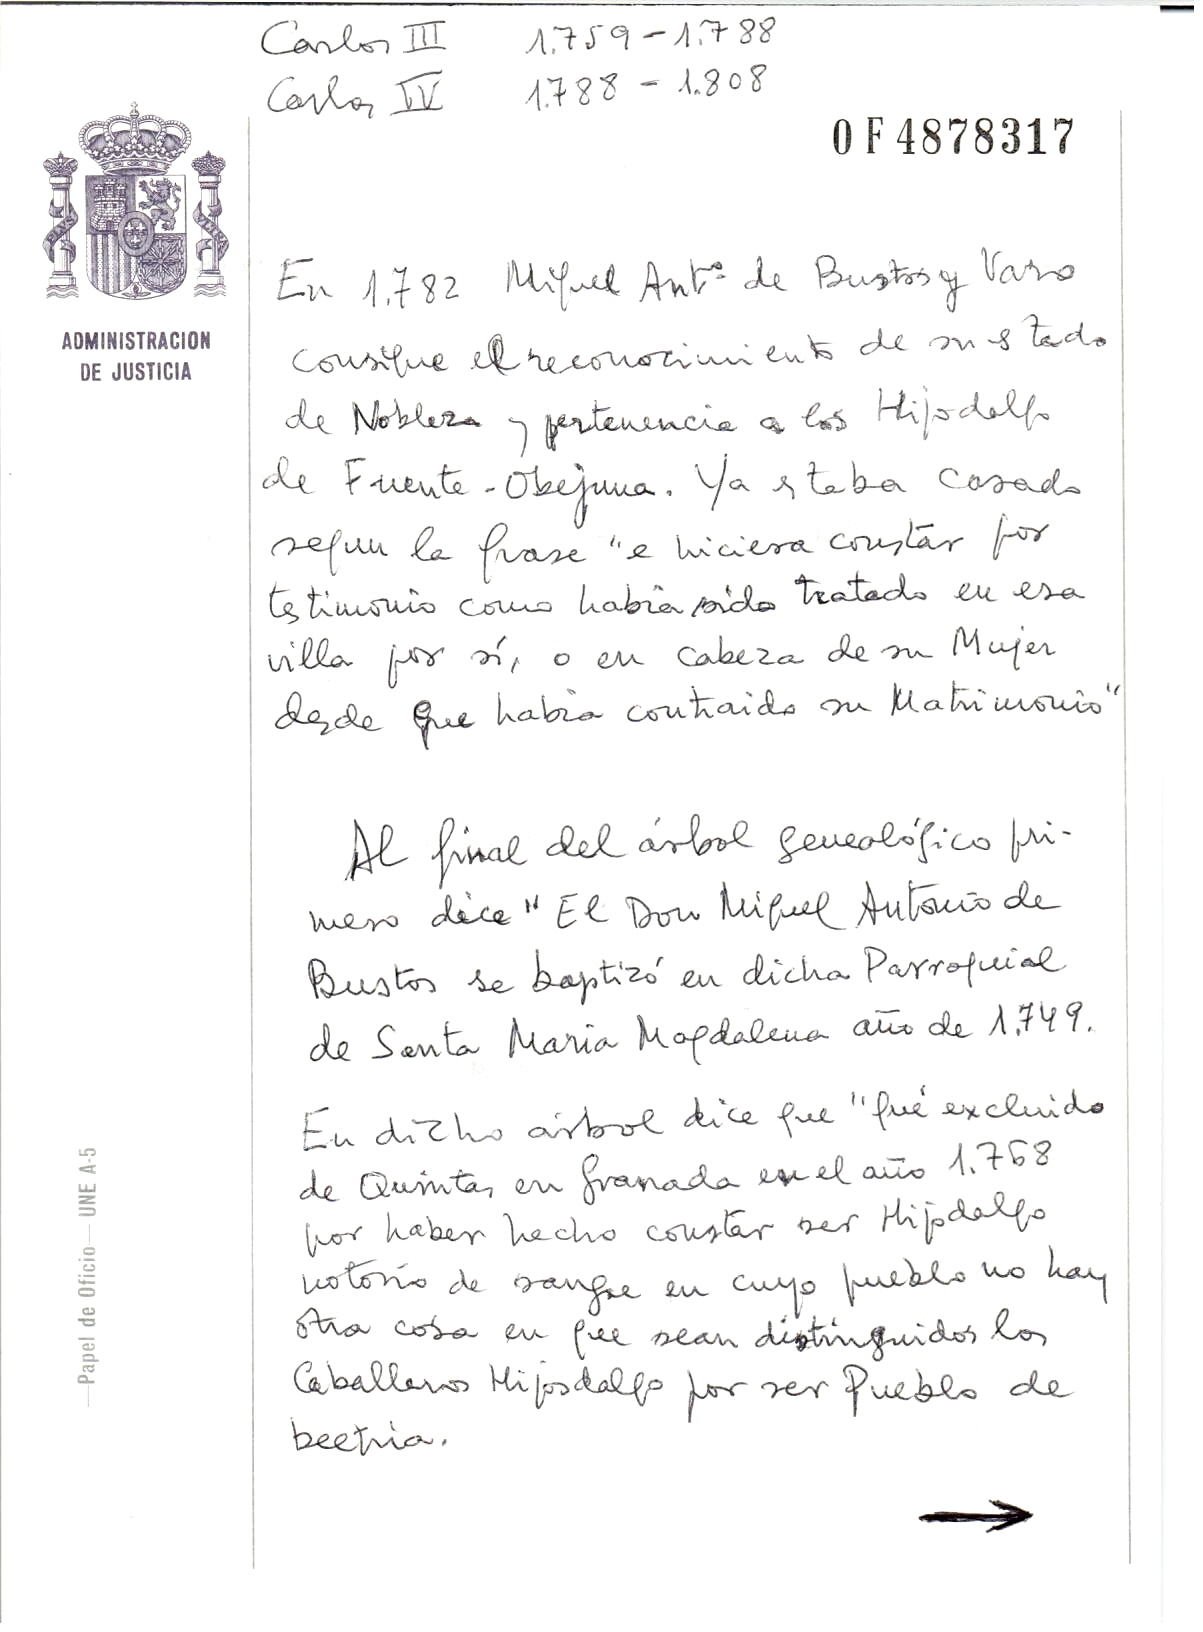 Carlos III 1.759-1.788
Carlos IV 1.788-1.808
0F4878317
PLVS VLTRA
ADMINISTRACION
DE JUSTICIA
En 1.782 Miguel Antº de Bustos y Vaso
consigue el reconocimiento de su estado
de Nobleza y pertenencia a los Hijodalgo
de Fuente-Obejuna. Ya estaba casado
segun la frase "e hiciera constar por
testimonio como había sido tratado en esa
villa por sí, o en cabeza de su Mujer
desde que había contraido su Matrimonio"
Al final del árbol genealógico pri-
mero dice "El Don Miguel Antonio de
Bustos se baptizó en dicha Parroquial
de Santa María Magdalena año de 1.749.
En dicho árbol dice que "fué excluido
de Quintas en Granada en el año 1.768
por haber hecho constar ser Hijodalgo
notorio de sangre en cuyo pueblo no hay
otra cosa en que sean distinguidos los
Caballeros Hijosdalgo por ser Pueblo de
beetria.
Papel de Oficio — UNE A-5